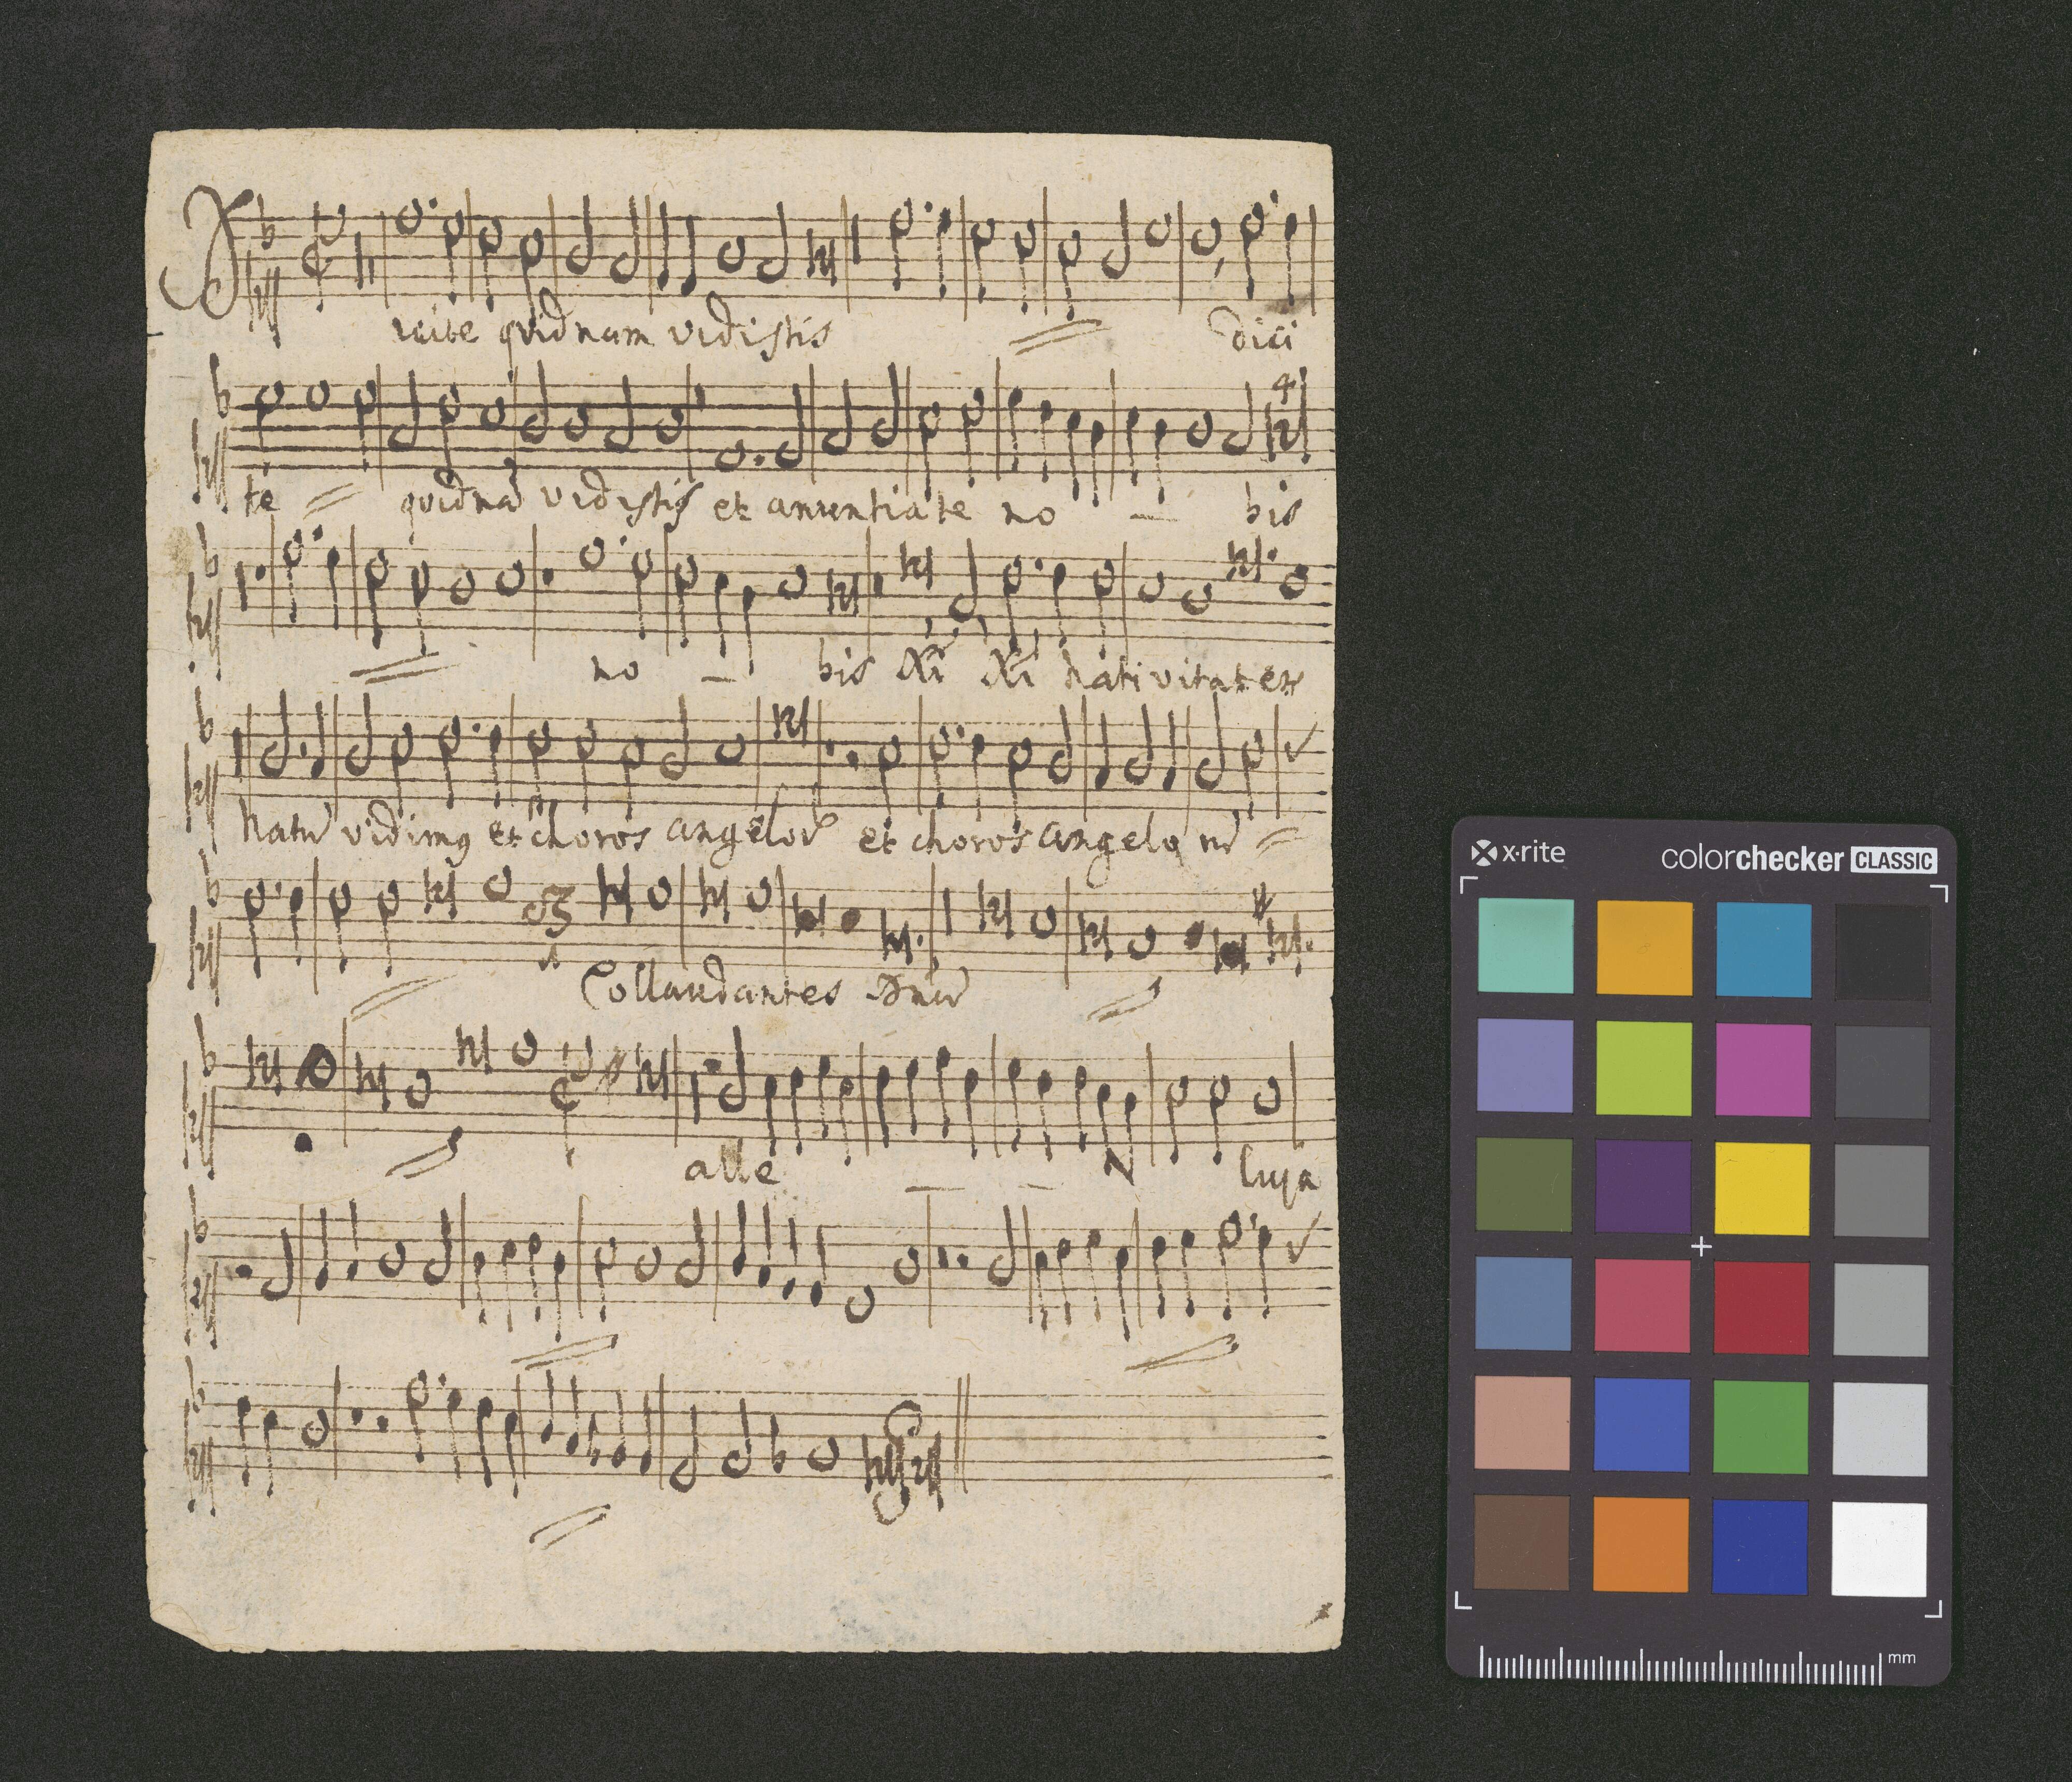 Dicite quidnam vidistis dici
te quidnã vidistis et anuntiate no - bis
no - bis Xi Xi nativitatem
natũ vidimq et choros angelor et choros angelo rũ
Collaudantes Dnũ
alle - - luya
x·rite colorchecker CLASSIC
mm